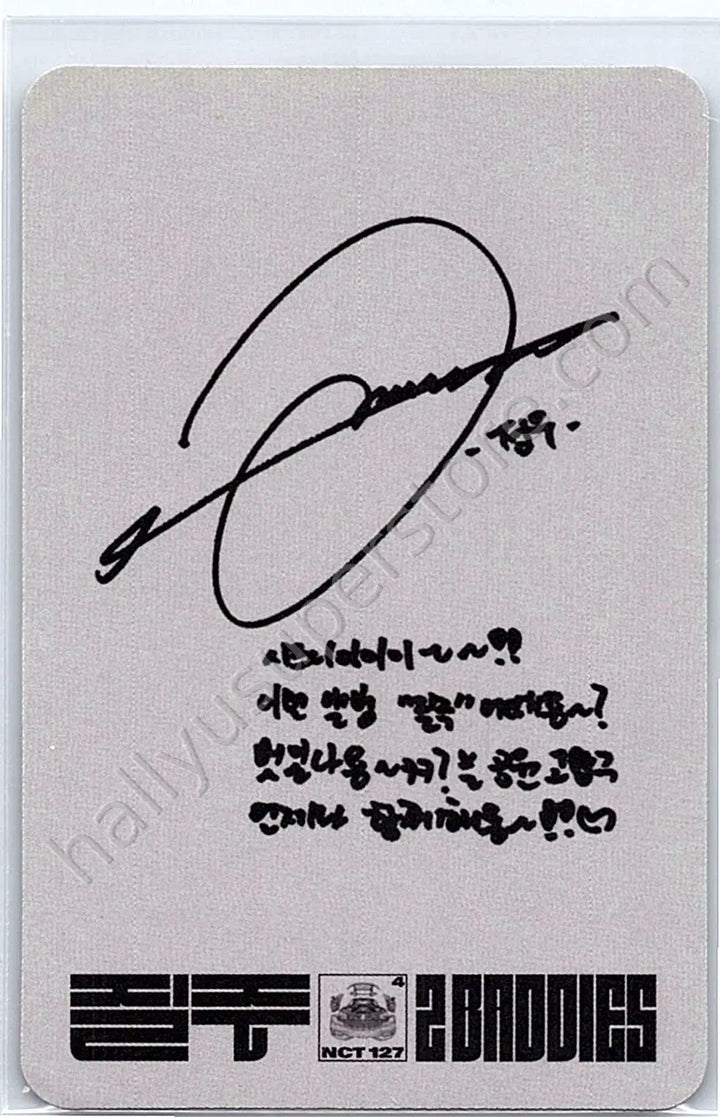 - 정우 -
시즈니이이이~~!!
이번 앨범 "질주" 어때용~?
멋걸나용~ㅋㅋ? 늘 고맙구
언제나 함께해용~!!♡
질주
4
NCT 127
2 BADDIES
hallyusuperstore.com